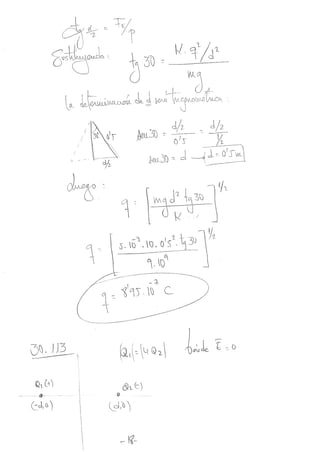 tg α/2 = Fe/p
Sustituyendo: tg 30 = K·q²/d² / mg
la determinación de d será trigonométrica:
30 0'5 d/2
sen 30 = d/2 / 0'5 = d/2 / ½
sen 30 = d → d = 0'5 m
Luego:
q = [mg d² tg 30 / K]^1/2
q = [5·10⁻³·10·0'5²·tg 30 / 9·10⁹]^1/2
q = 8'95·10⁻⁷ C
30.113 |Q₁| = |4Q₂| donde E = 0
Q₁(+) Q₂(-)
(-d,0) (d,0)
-18-